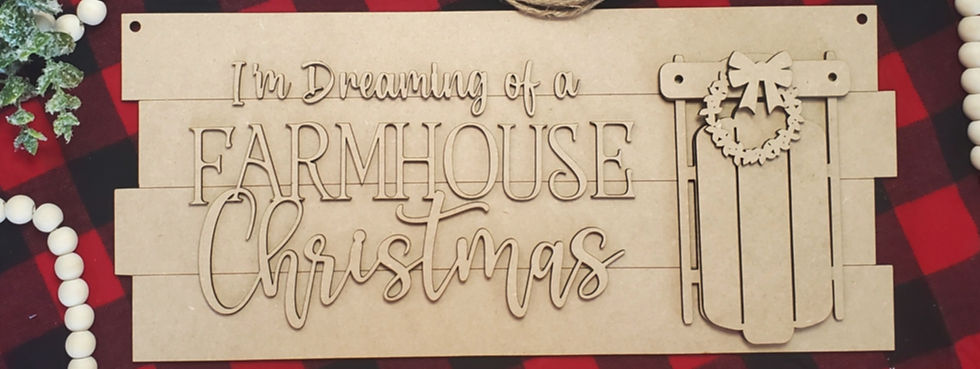 I'm Dreaming of a
FARMHOUSE
Christmas